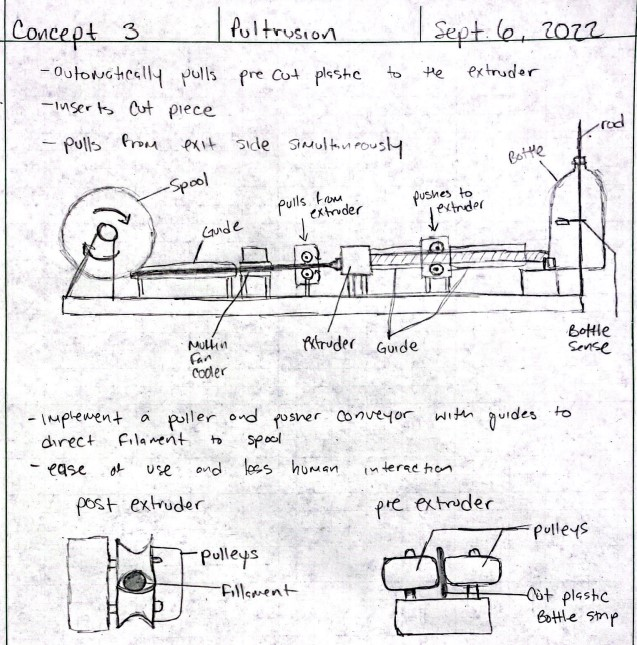 Concept 3
Pultrusion
Sept. 6, 2022
- automatically pulls pre cut plastic to the extruder
- inserts cut piece
- pulls from exit side simultaneously
Spool
Guide
pulls from
extruder
pushes to
extruder
Bottle
rod
Muffin
Fan
cooler
extruder
Guide
Bottle
Sense
- implement a puller and pusher conveyor with guides to
direct filament to spool
- ease of use and less human interaction
post extruder
pre extruder
pulleys
Fillament
pulleys
Cut plastic
Bottle strip